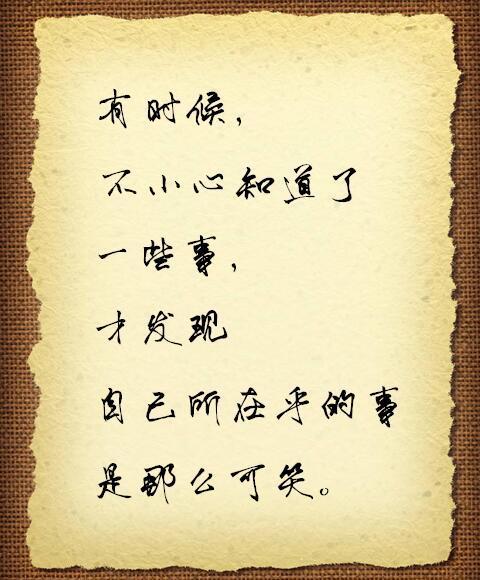 有时候，
不小心知道了
一些事，
才发现
自己所在乎的事
是那么可笑。